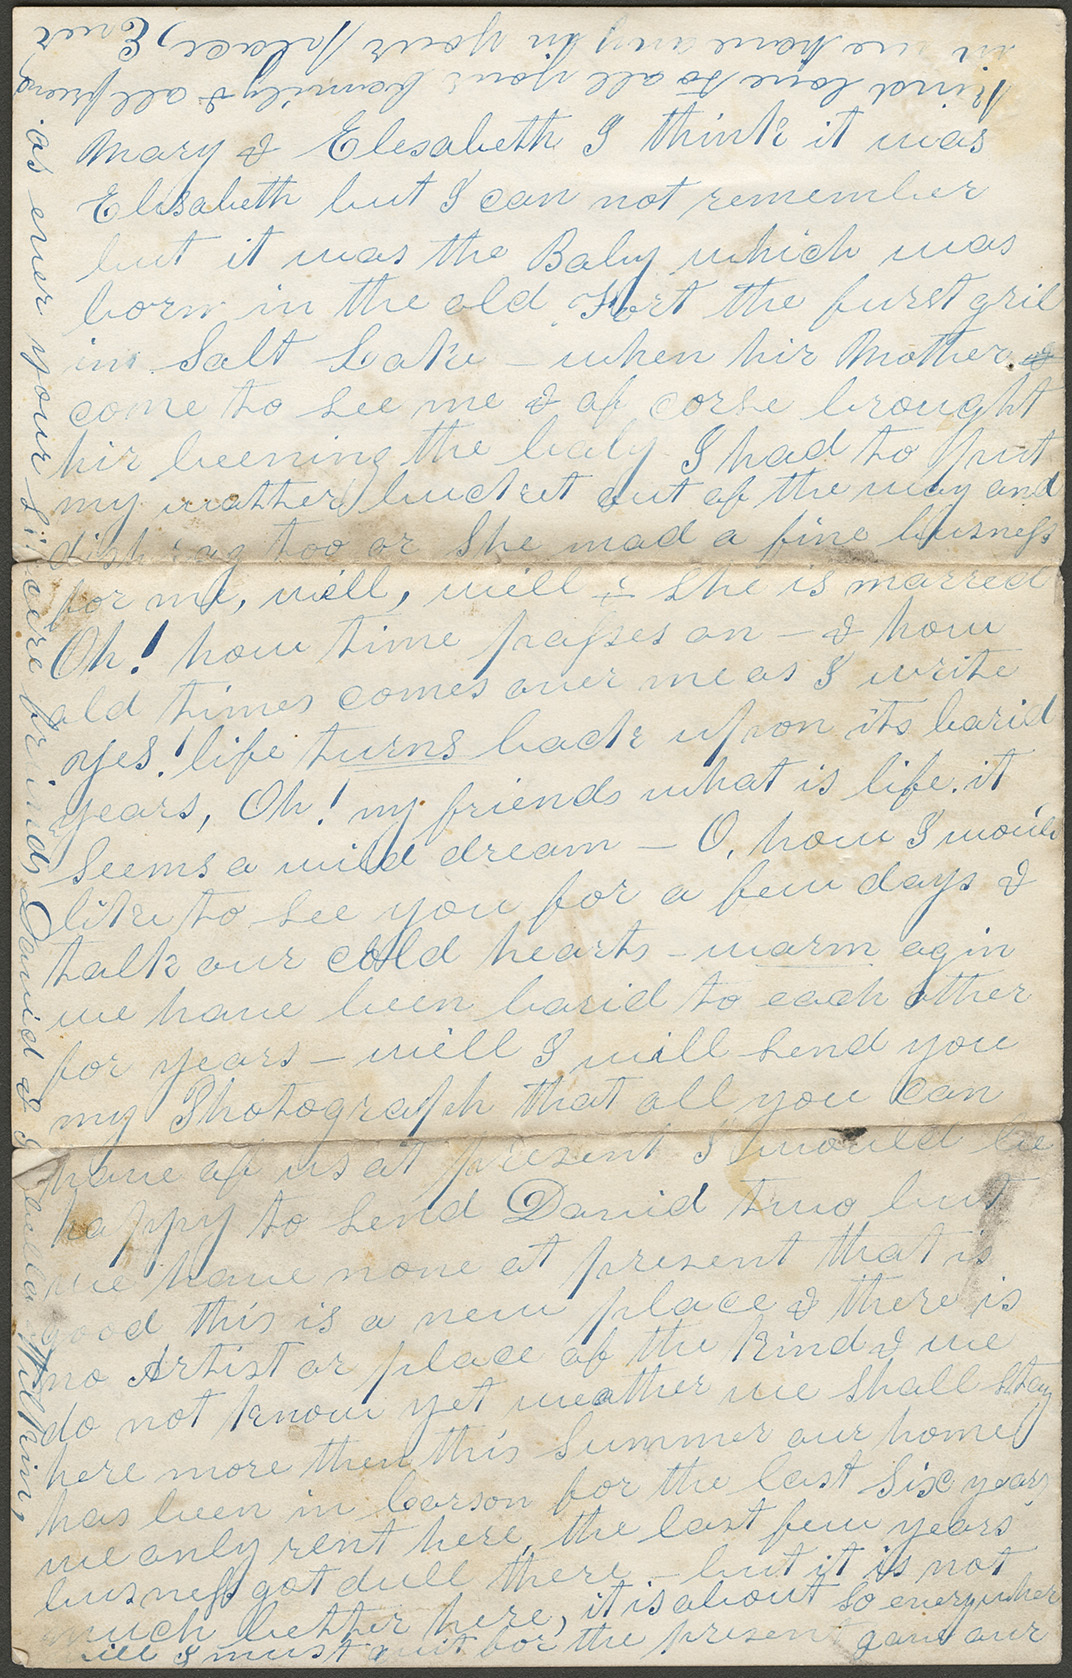 Mary & Elesabeth I think it was
Elisabeth but I can not remember
but it was the Baby which was
born in the old Fort the furst gril
in Salt Lake – when hir Mother
come to see me & of corse brought
hir beening the baly I had to put
my watter bucket out of the way and
dish rag too or She mad a fine busness
for me, well, well & she is marred
Oh! how time passes on – & how
old times comes over me as I write
yes! life turns back upon its barid
years, Oh! my friends what is life. it
Seems a wild dream – O, how I would
like to see you for a few days &
talk our cold hearts – warm agin
we have been barid to each other
for years – well I will send you
my Photograph that all you can
have of us at present I would be
happy to send David two but
we have none at present that is
good this is a new place & there is
no Artist or place of the kind & we
do not know yet weather we shall stay
here more then this Summer our home
has been in Carson for the last Six years
we only rent here, the last few years
busness got dull there – but it is not
much better here, it is about so everywher
well I must quit for the present gave our
kind love to all your family & all friends
in we have any in your place, Ever
as ever your Sincere friends David & Julila Wilkin,